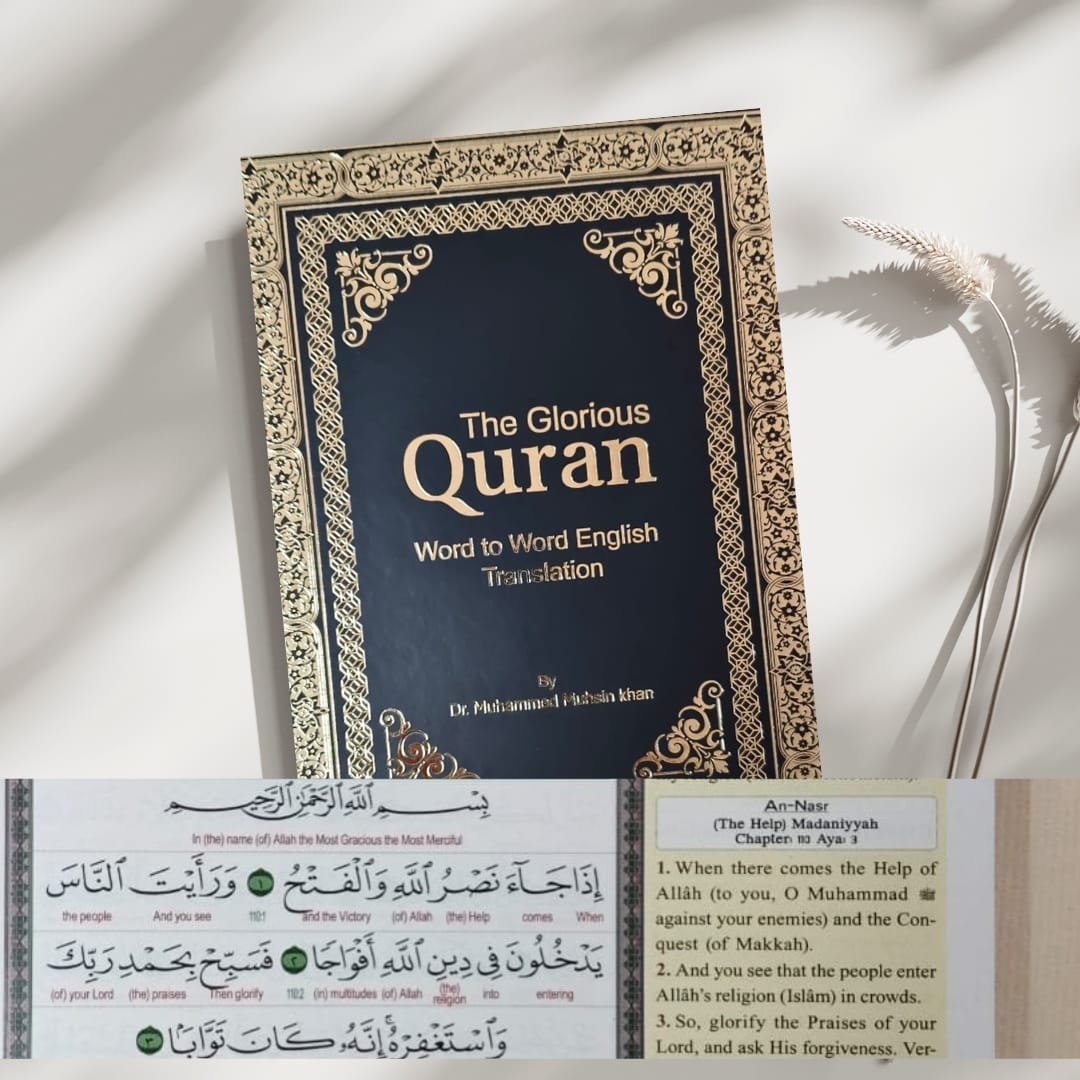 The Glorious
Quran
Word to Word English
Translation
By
Dr. Muhammed Muhsin khan
بِسْمِ ٱللَّهِ ٱلرَّحْمَٰنِ ٱلرَّحِيمِ
In (the) name (of) Allah the Most Gracious the Most Merciful
إِذَا جَآءَ نَصْرُ ٱللَّهِ وَٱلْفَتْحُ ١ وَرَأَيْتَ ٱلنَّاسَ
the people And you see 110:1 and the Victory (of) Allah (the) Help comes When
يَدْخُلُونَ فِى دِينِ ٱللَّهِ أَفْوَاجًا ٢ فَسَبِّحْ بِحَمْدِ رَبِّكَ
(of) your Lord (the) praises Then glorify 110:2 (in) multitudes (of) Allah (the) religion into entering
وَٱسْتَغْفِرْهُ ۚ إِنَّهُۥ كَانَ تَوَّابًۢا ٣
An-Nasr
(The Help) Madaniyyah
Chapter: 110 Aya: 3
1. When there comes the Help of
Allâh (to you, O Muhammad ﷺ
against your enemies) and the Con-
quest (of Makkah).
2. And you see that the people enter
Allâh's religion (Islâm) in crowds.
3. So, glorify the Praises of your
Lord, and ask His forgiveness. Ver-